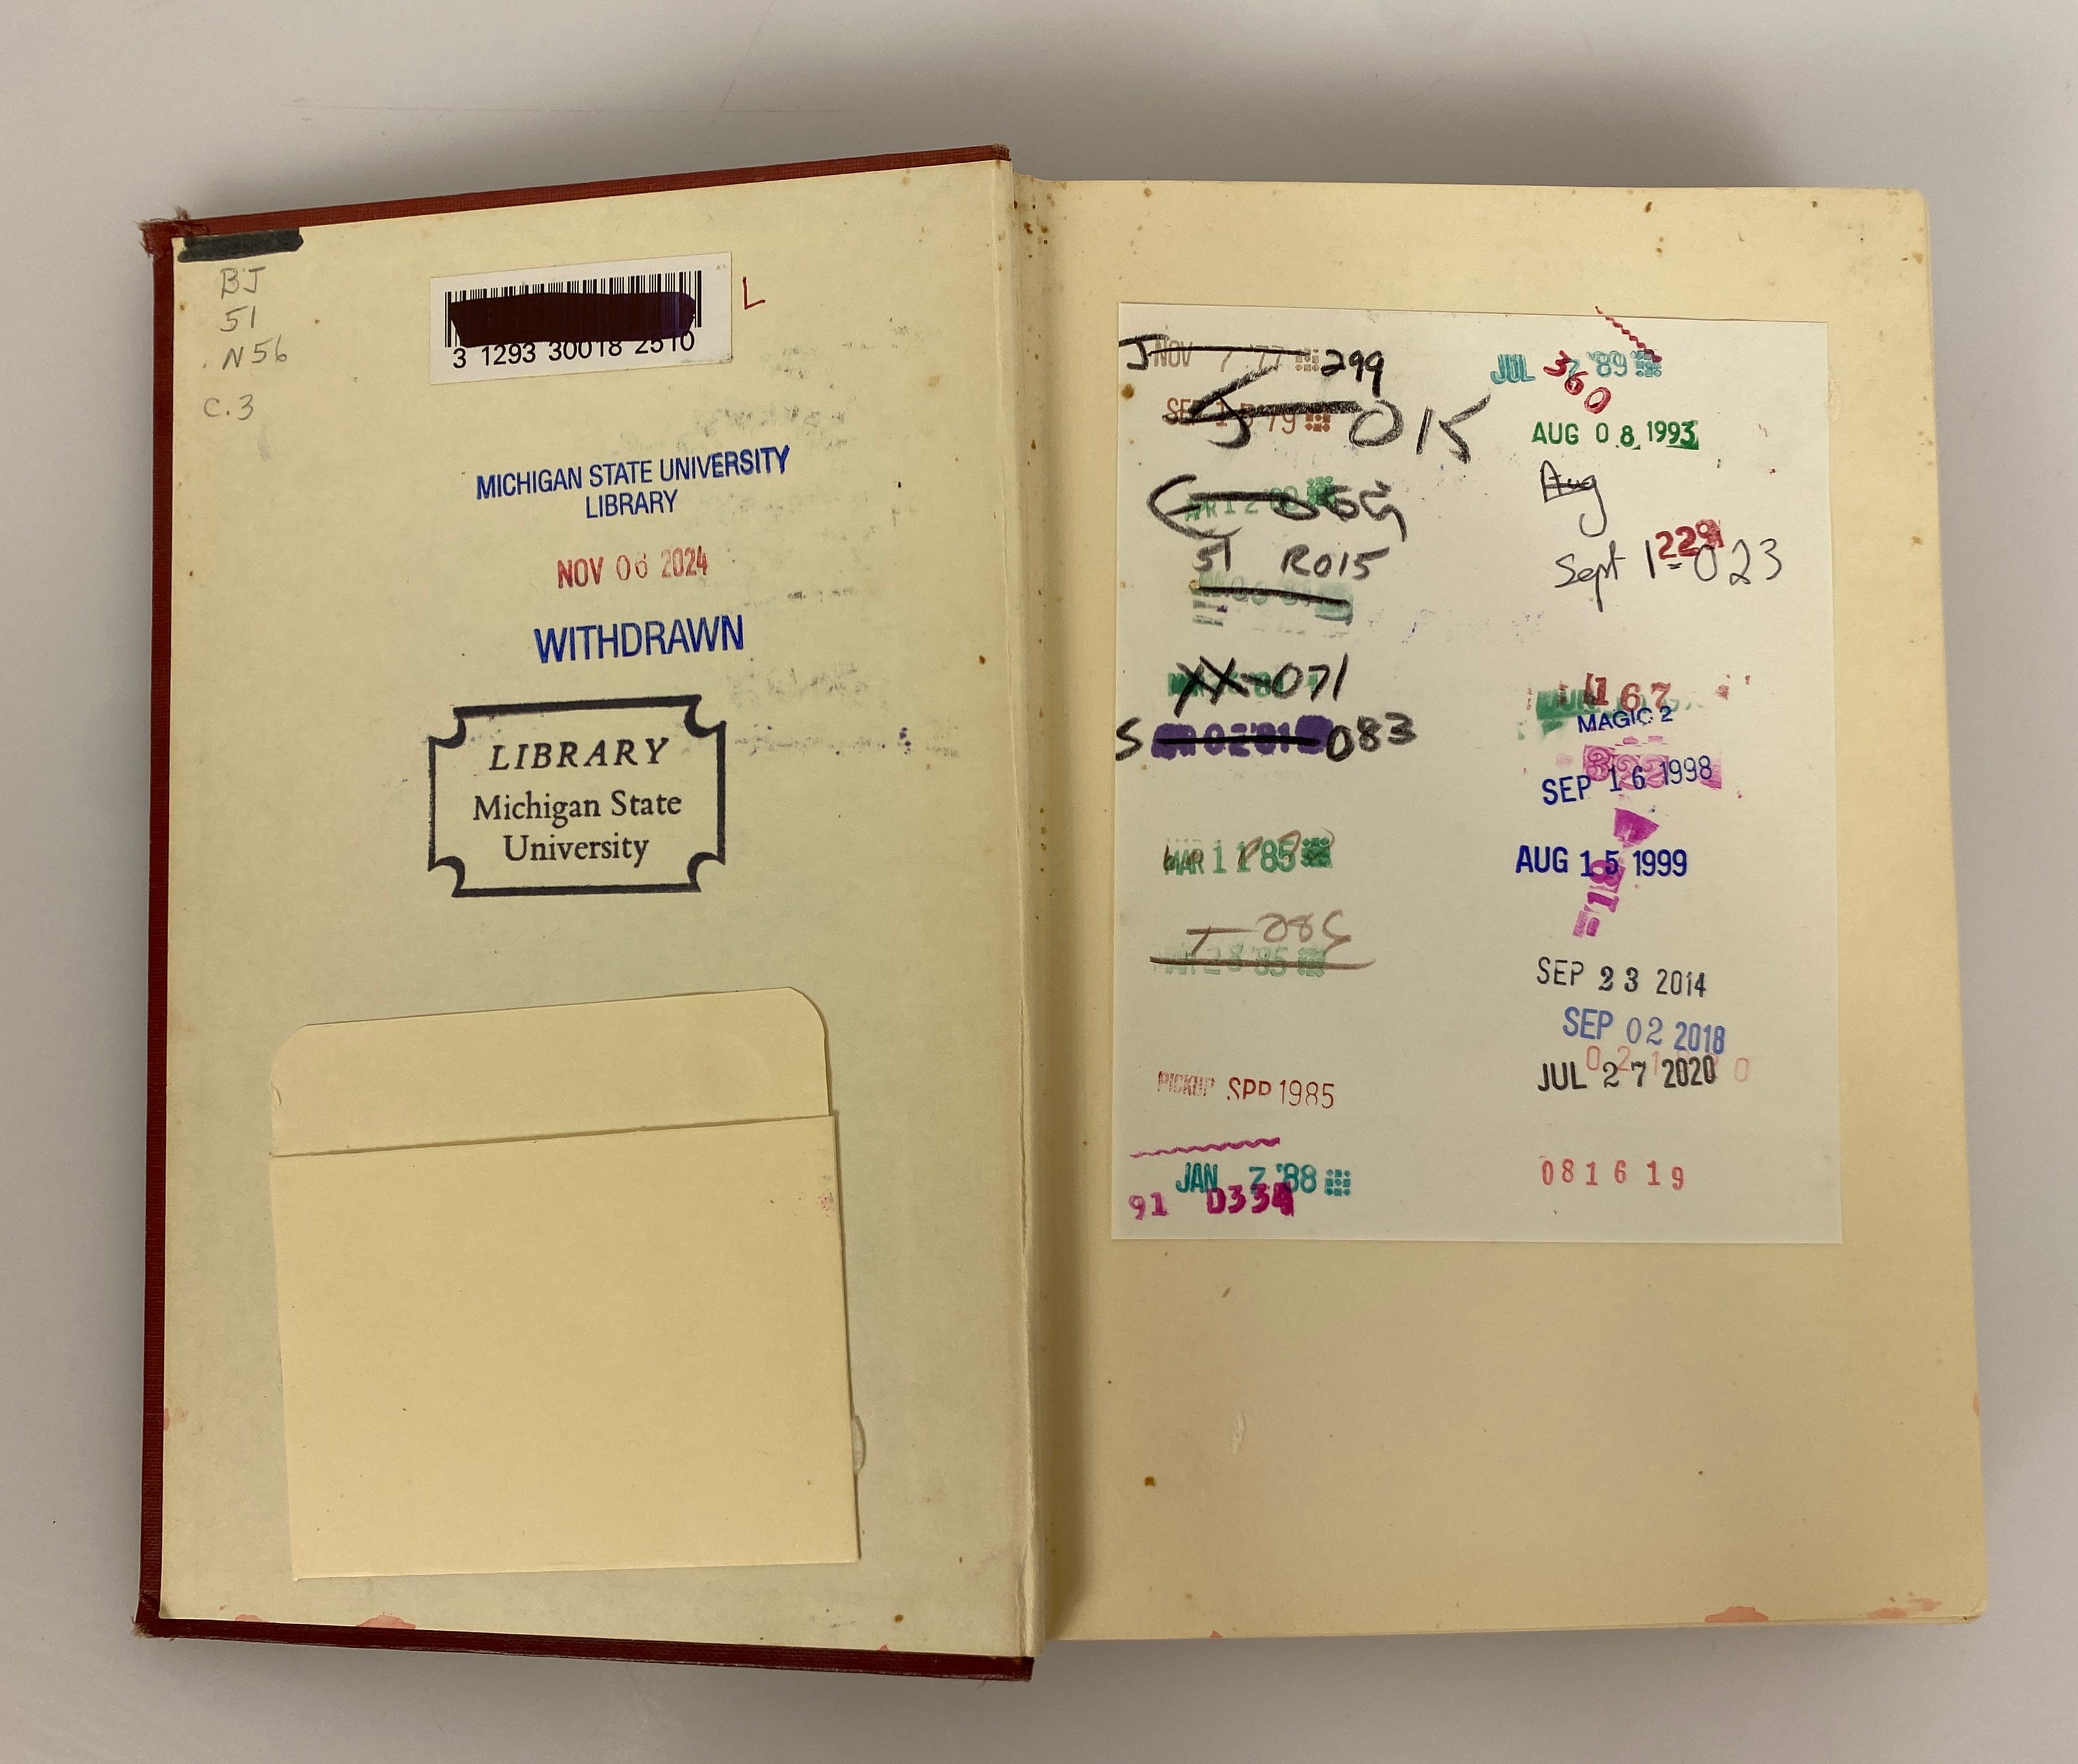 BJ
51
N56
C.3
3 1293 30018 2510
L
MICHIGAN STATE UNIVERSITY
LIBRARY
NOV 06 2024
WITHDRAWN
LIBRARY
Michigan State
University
J NOV 7 '77 299
J 015
51 R015
XX-071
S 083
MAR 11 '85
PICKUP 1985
JAN 7 '88
91 D334
JUL '89
360
AUG 08 1993
Aug
229
Sept 1 023
167
MAGIC 2
SEP 16 1998
AUG 15 1999
SEP 23 2014
SEP 02 2018
JUL 27 2020
081619